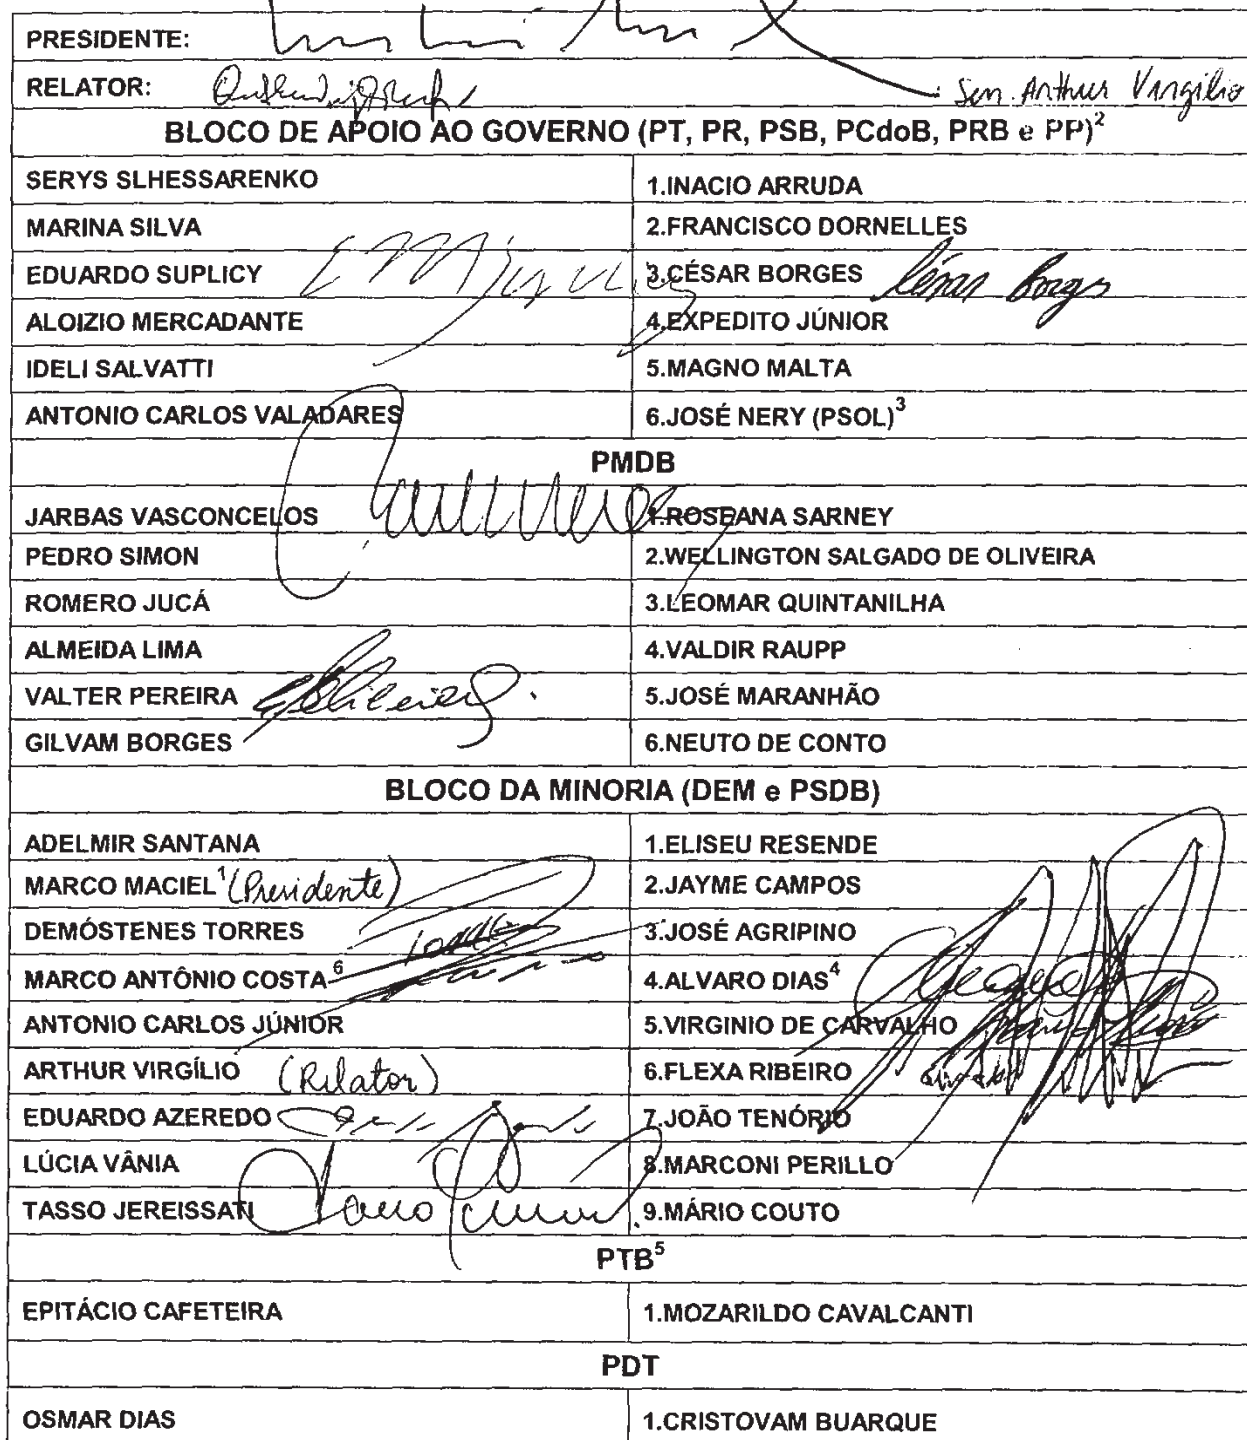 PRESIDENTE:
RELATOR: Sen. Arthur Virgílio
BLOCO DE APOIO AO GOVERNO (PT, PR, PSB, PCdoB, PRB e PP)²
SERYS SLHESSARENKO 1.INACIO ARRUDA
MARINA SILVA 2.FRANCISCO DORNELLES
EDUARDO SUPLICY 3.CÉSAR BORGES César Borges
ALOIZIO MERCADANTE 4.EXPEDITO JÚNIOR
IDELI SALVATTI 5.MAGNO MALTA
ANTONIO CARLOS VALADARES 6.JOSÉ NERY (PSOL)³
PMDB
JARBAS VASCONCELOS 1.ROSEANA SARNEY
PEDRO SIMON 2.WELLINGTON SALGADO DE OLIVEIRA
ROMERO JUCÁ 3.LEOMAR QUINTANILHA
ALMEIDA LIMA 4.VALDIR RAUPP
VALTER PEREIRA 5.JOSÉ MARANHÃO
GILVAM BORGES 6.NEUTO DE CONTO
BLOCO DA MINORIA (DEM e PSDB)
ADELMIR SANTANA 1.ELISEU RESENDE
MARCO MACIEL¹ (Presidente) 2.JAYME CAMPOS
DEMÓSTENES TORRES 3.JOSÉ AGRIPINO
MARCO ANTÔNIO COSTA⁶ 4.ALVARO DIAS⁴
ANTONIO CARLOS JÚNIOR 5.VIRGINIO DE CARVALHO
ARTHUR VIRGÍLIO (Relator) 6.FLEXA RIBEIRO
EDUARDO AZEREDO 7.JOÃO TENÓRIO
LÚCIA VÂNIA 8.MARCONI PERILLO
TASSO JEREISSATI 9.MÁRIO COUTO
PTB⁵
EPITÁCIO CAFETEIRA 1.MOZARILDO CAVALCANTI
PDT
OSMAR DIAS 1.CRISTOVAM BUARQUE